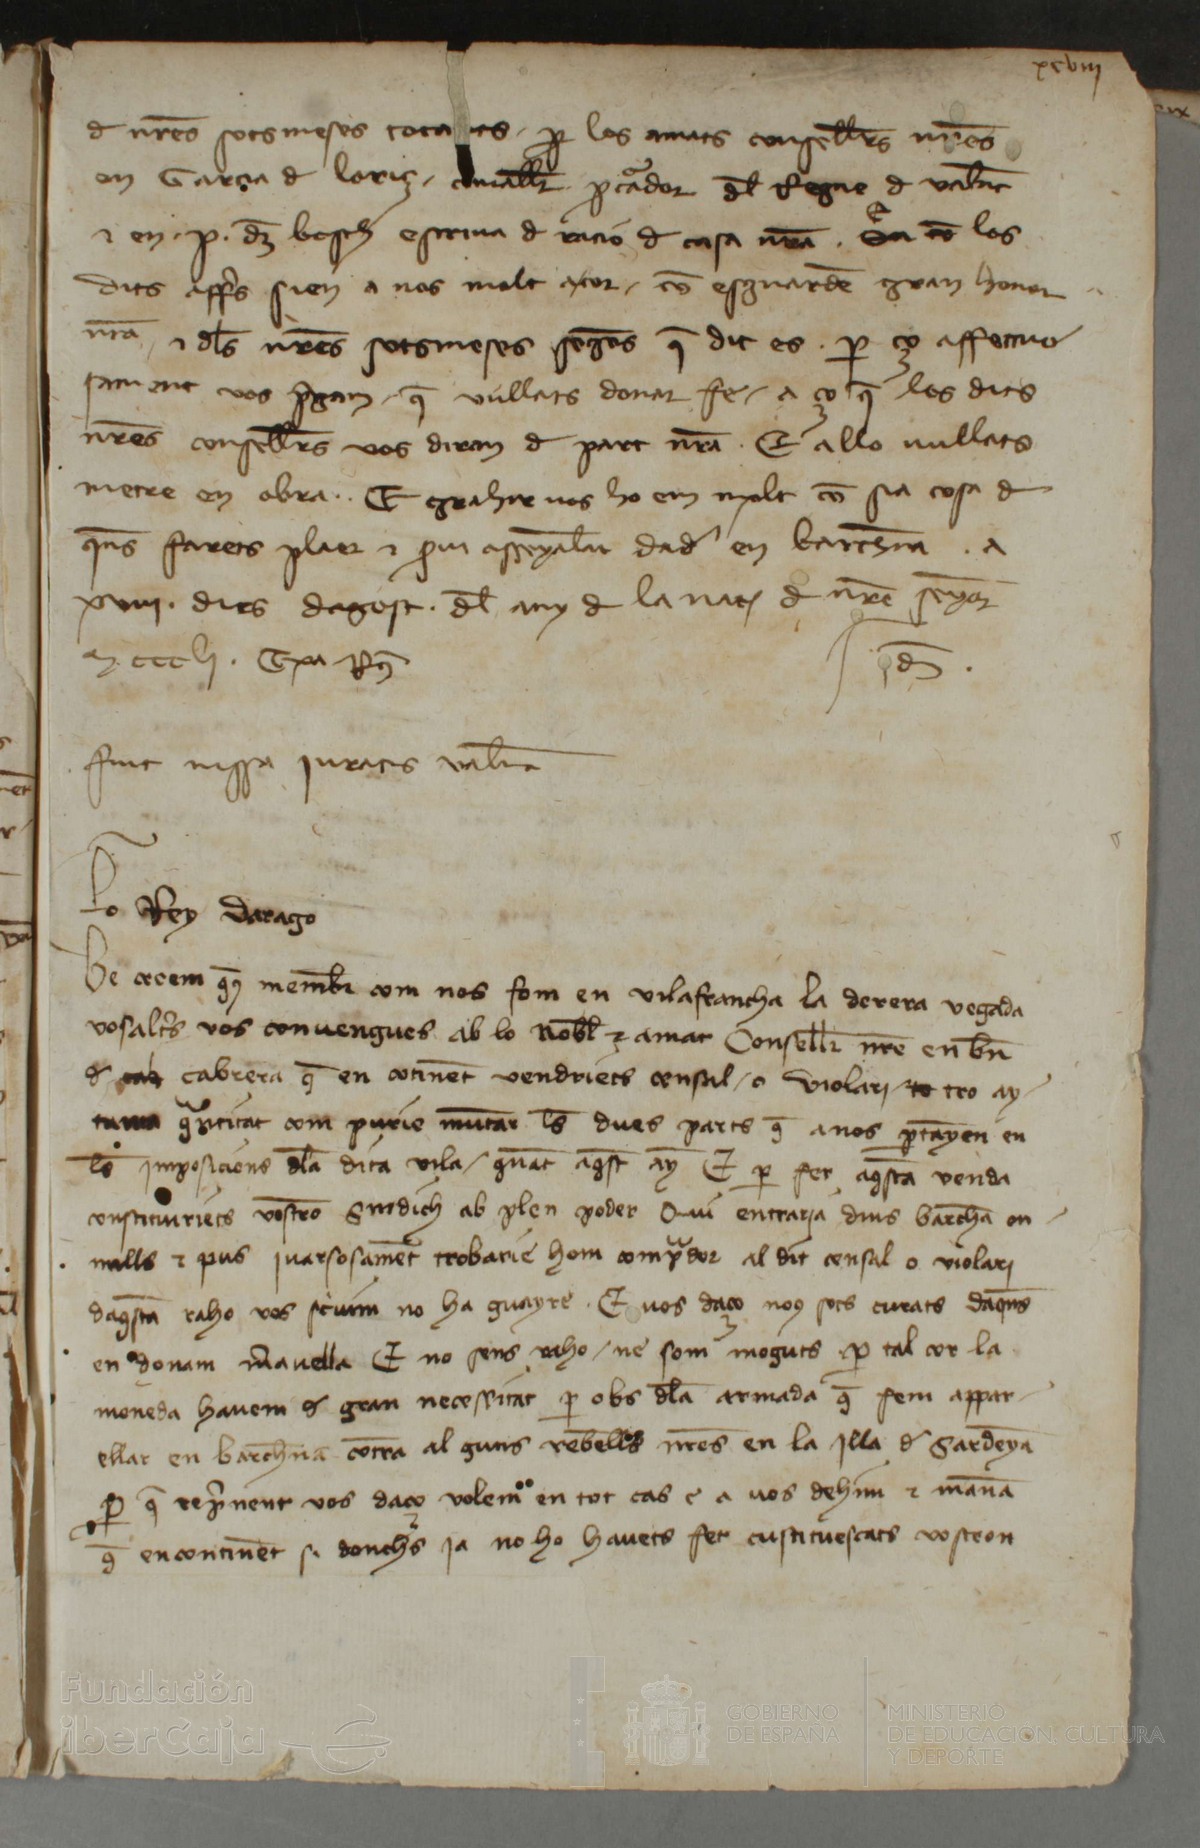 xcviii
d nr̄es sotsmeses tocants / p̱ los amats consellers nr̄es
en Garcia d loriç / cauall̄r p̱cādor dl̄ Regne d val̄nc
⁊ en . p . dz̄ bosch escriua d racio d casa nr̄a . E cō los
dits affr̄s sien a nos molt a cor / cō esguardē gran honor
nr̄a / ⁊ dl̄s nr̄es sotsmeses segōs q̄ dit es . p̱ ço affectuo
sament vos p̄gam / q̄ vullats donar fe / a ço q̄ los dits
nr̄es consellr̄s vos diran d part nr̄a . E allo vullats
metre en obra . E grahir uos ho em molt cō sia cosa d
q̄ns farets plaer ⁊ s̄ui assenyal̄at dad̄ en barchn̄a . a
xviii . dies dagost . dl̄ any d la nat̄ d nr̄e senȳor
m ccc li . Exa R̄g
idm̄ .
fuit missa iuratis val̄n̄
Lo Rey Darago
Be creem q̄us membr̄ com nos fom en vilafrancha la derera vegada
vosaltr̄s vos conuengues ab lo nobl̄ ⁊ amat Consellr̄ nr̄e en bn̄
d cabrera q̄ en cōtinēt vendriets censal / o violari tro ay
tanta q̄ntitat com purie muntar ls̄ dues parts q̄ a nos p̱tāyen en
ls̄ imposicions dl̄a dita vila / gūat aq̄st āy E p̱ fer aq̄sta venda
constituiriets vostro Sindich ab plen poder Qui entraria dins barchā on
mills ⁊ pus iuarsosamēt trobarie hom comp̄dor al dit censal o violari
daq̄sta raho vos scriuim no ha guayre . E uos daço noy sots curats daq̄ns
en donam m̄auella E no sens raho / ne som moguts p̱ tal cor la
moneda hauem d gran necessitat p̱ obs dl̄a armada q̄ fem appar
ellar en barchn̄a cōtra alguns rebell̄s nr̄es en la Illa d Sardēya
p̱ q̄ rep̄nent vos daço volem en tot cas e a uos dehim ⁊ manā
q̄ encontinēt si donchs ia no ho hauets fet custituescats vostron
Fundación
iberCaja
GOBIERNO
DE ESPAÑA
MINISTERIO
DE EDUCACIÓN, CULTURA
Y DEPORTE